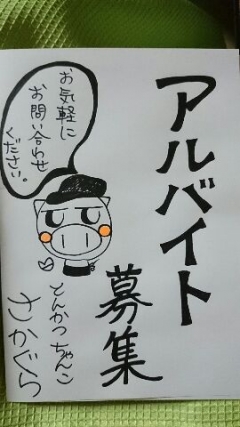 アルバイト
募集
お気軽に
お問い合わせ
ください。
とんかつちゃんこ
さかぐら